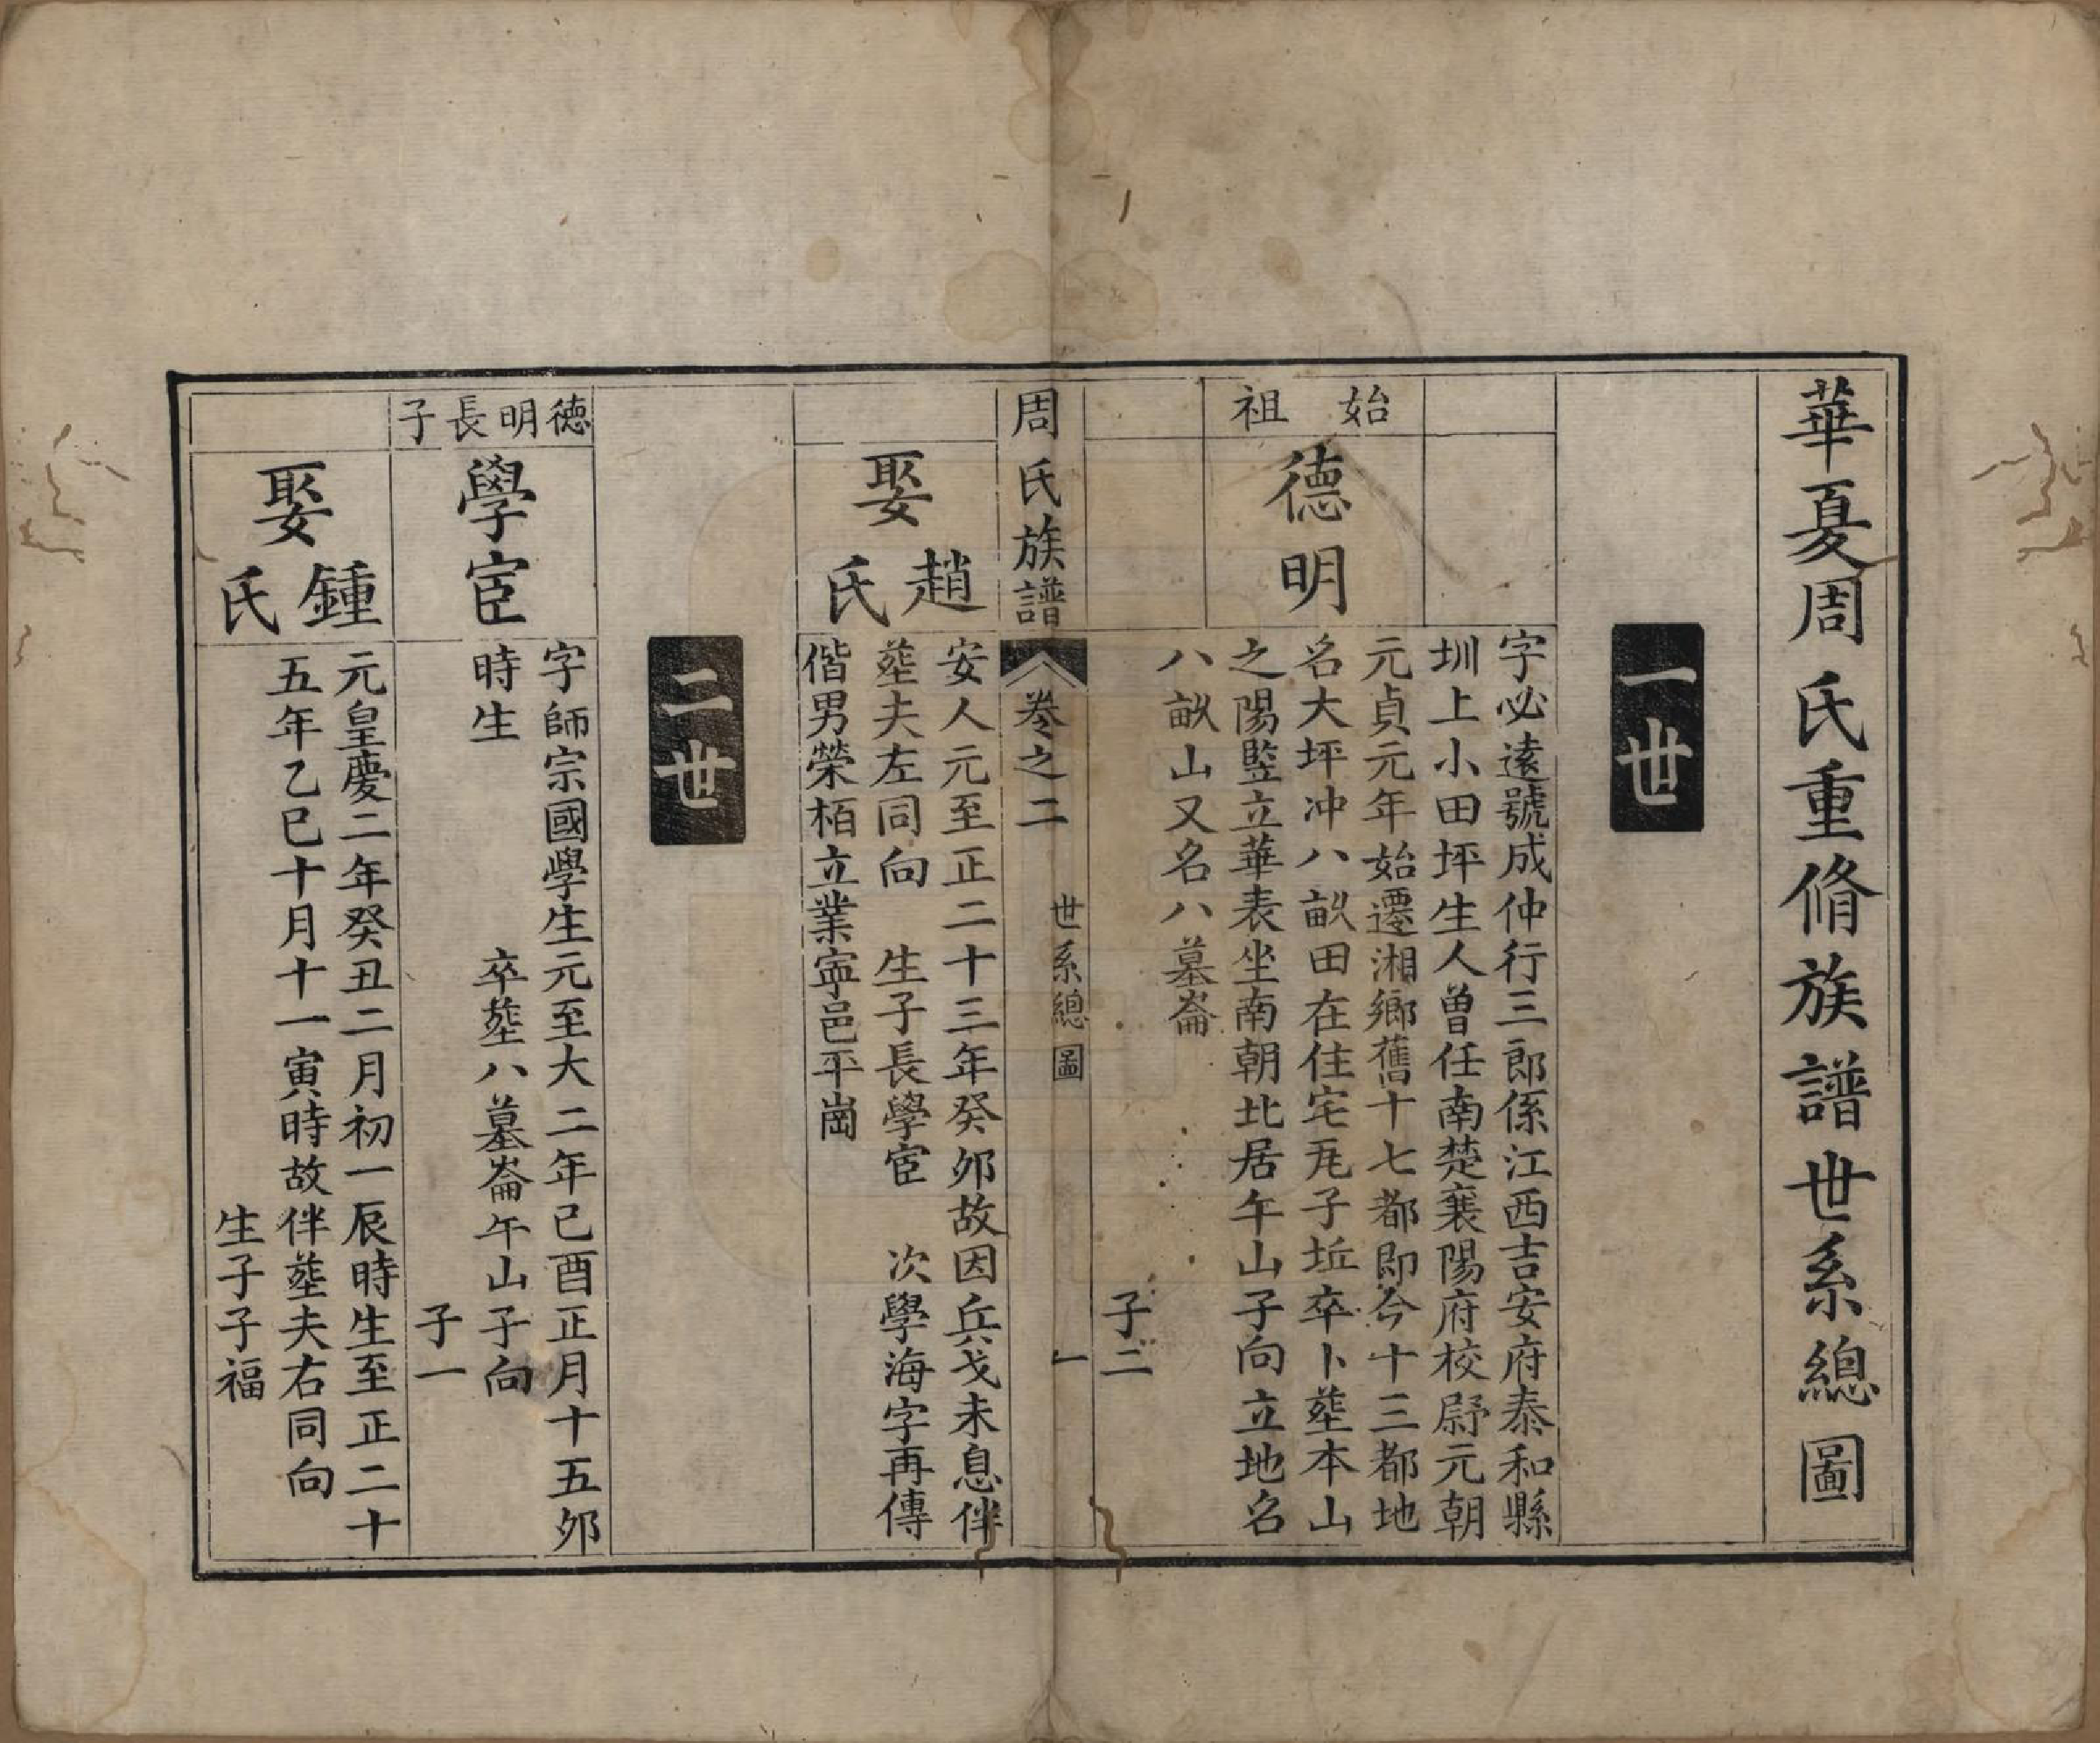 華夏周氏重脩族譜世系總圖
一世
始祖
德明
字必遠號成仲行三郎係江西吉安府泰和縣
圳上小田坪生人曾任南楚襄陽府校尉元朝
元貞元年始遷湘鄉舊十七都即今十三都地
名大坪冲八畝田在住宅旄子坵卒卜塟本山
之陽竪立華表坐南朝北居午山子向立地名
八畝山又名八墓崙
子二
周氏族譜
卷之二
世系總圖
一
娶趙氏
安人元至正二十三年癸夘故因兵戈未息伴
塟夫左同向 生子長學宦 次學海字再傳
偕男榮栢立業寜邑平崗
二世
德明長子
學宦
字師宗國學生元至大二年己酉正月十五夘
時生 卒塟八墓崙午山子向
子一
娶鍾氏
元皇慶二年癸丑二月初一辰時生至正二十
五年乙巳十月十一寅時故伴塟夫右同向
生子子福